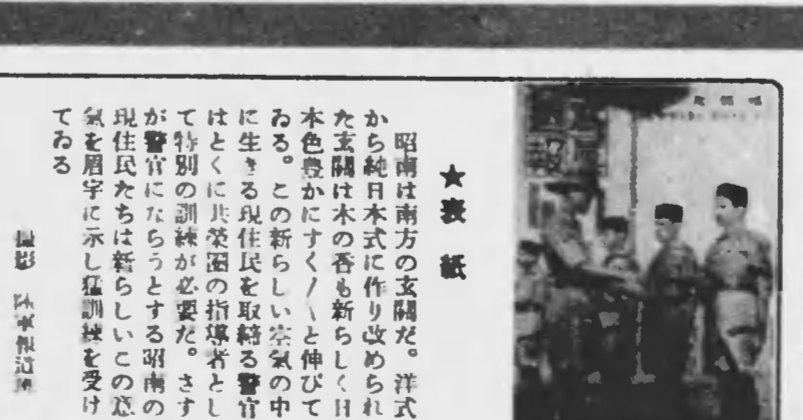 ★表紙
昭南は南方の玄關だ。洋式
から純日本式に作り改められ
た玄關は木の香も新らしく日
本色豊かにすく〳〵と伸びて
ゐる。この新らしい空氣の中
に生きる現住民を取締る警官
はとくに共榮圏の指導者とし
て特別の訓練が必要だ。さす
が警官にならうとする昭南の
現住民たちは新らしいこの意
氣を眉宇に示し猛訓練を受け
てゐる
撮影 陸軍報道班